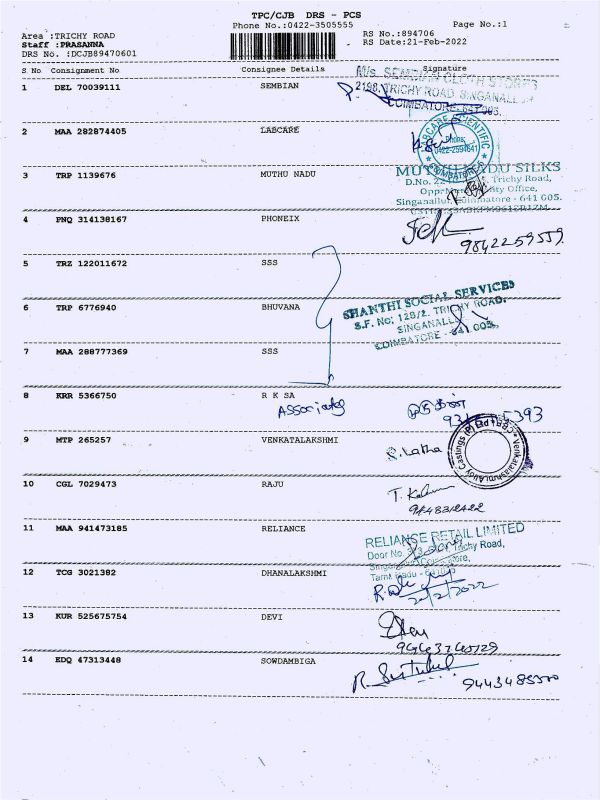 TPC/CJB DRS - PCS
Phone No.:0422-3505555
Page No.:1
Area :TRICHY ROAD
RS No.:894706
Staff :PRASANNA
RS Date:21-Feb-2022
DRS No. :DCJB89470601
S No Consignment No Consignee Details Signature
1 DEL 70039111 SEMBIAN
M/s. SEMBIAN CLOTH STORES
2198, TRICHY ROAD, SINGANALLUR
COIMBATORE. 641 005.
2 MAA 282874405 LABCARE
LABCARE SCIENTIFIC
Phone:
0422-2591841
COIMBATORE
3 TRP 1139676 MUTHU NADU
MUTHU NADU SILKS
D.No. 22 Trichy Road,
Office,
Singanallur, Coimbatore - 641 005.
4 PNQ 314138167 PHONEIX
9842259559
5 TRZ 122011672 SSS
6 TRP 6776940 BHUVANA
SHANTHI SOCIAL SERVICES
S.F. No; 128/2. TRICHY ROAD.
SINGANALLUR
COIMBATORE - 641 005,
7 MAA 288777369 SSS
8 KRR 5366750 R K SA
Associates
5393
9 MTP 265257 VENKATALAKSHMI
R. Latha
Venkatalakshmi Alloy Castings (P)
10 CGL 7029473 RAJU
11 MAA 941473185 RELIANCE
RELIANCE RETAIL LIMITED
Door No. Trichy Road,
Tamil Nadu -
12 TCG 3021382 DHANALAKSHMI
13 KUR 525675754 DEVI
14 EDQ 47313448 SOWDAMBIGA